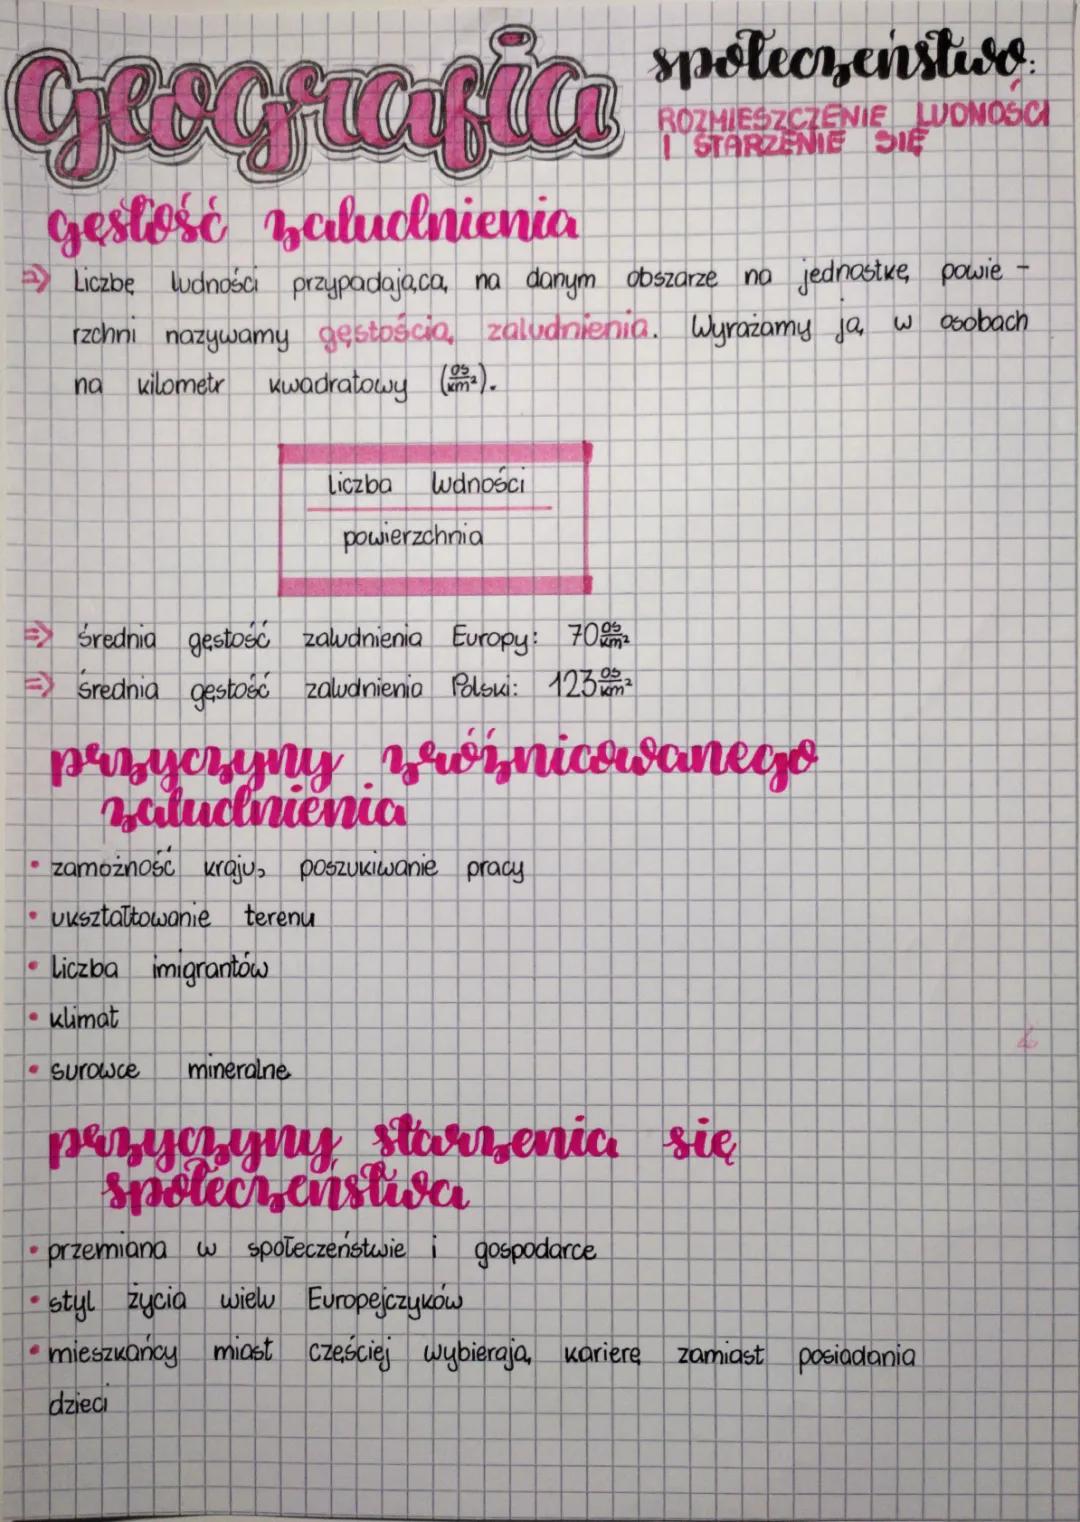 geografia
społeczeństwo:
ROZMIESZCZENIE LUDNOŚCI
I STARZENIE SIĘ
gęstość zaludnienia
⇒ Liczbę ludności przypadającą na danym obszarze na jednostkę powie-
rzchni nazywamy gęstością zaludnienia. Wyrażamy ją w osobach
na kilometr kwadratowy (os/km²).
liczba ludności
powierzchnia
⇒ średnia gęstość zaludnienia Europy: 70 os/km²
⇒ średnia gęstość zaludnienia Polski: 123 os/km²
przyczyny zróżnicowanego
zaludnienia
• zamożność kraju, poszukiwanie pracy
• ukształtowanie terenu
• liczba imigrantów
• klimat
• surowce mineralne
przyczyny starzenia się
społeczeństwa
• przemiana w społeczeństwie i gospodarce
• styl życia wielu Europejczyków
• mieszkańcy miast częściej wybierają karierę zamiast posiadania
dzieci